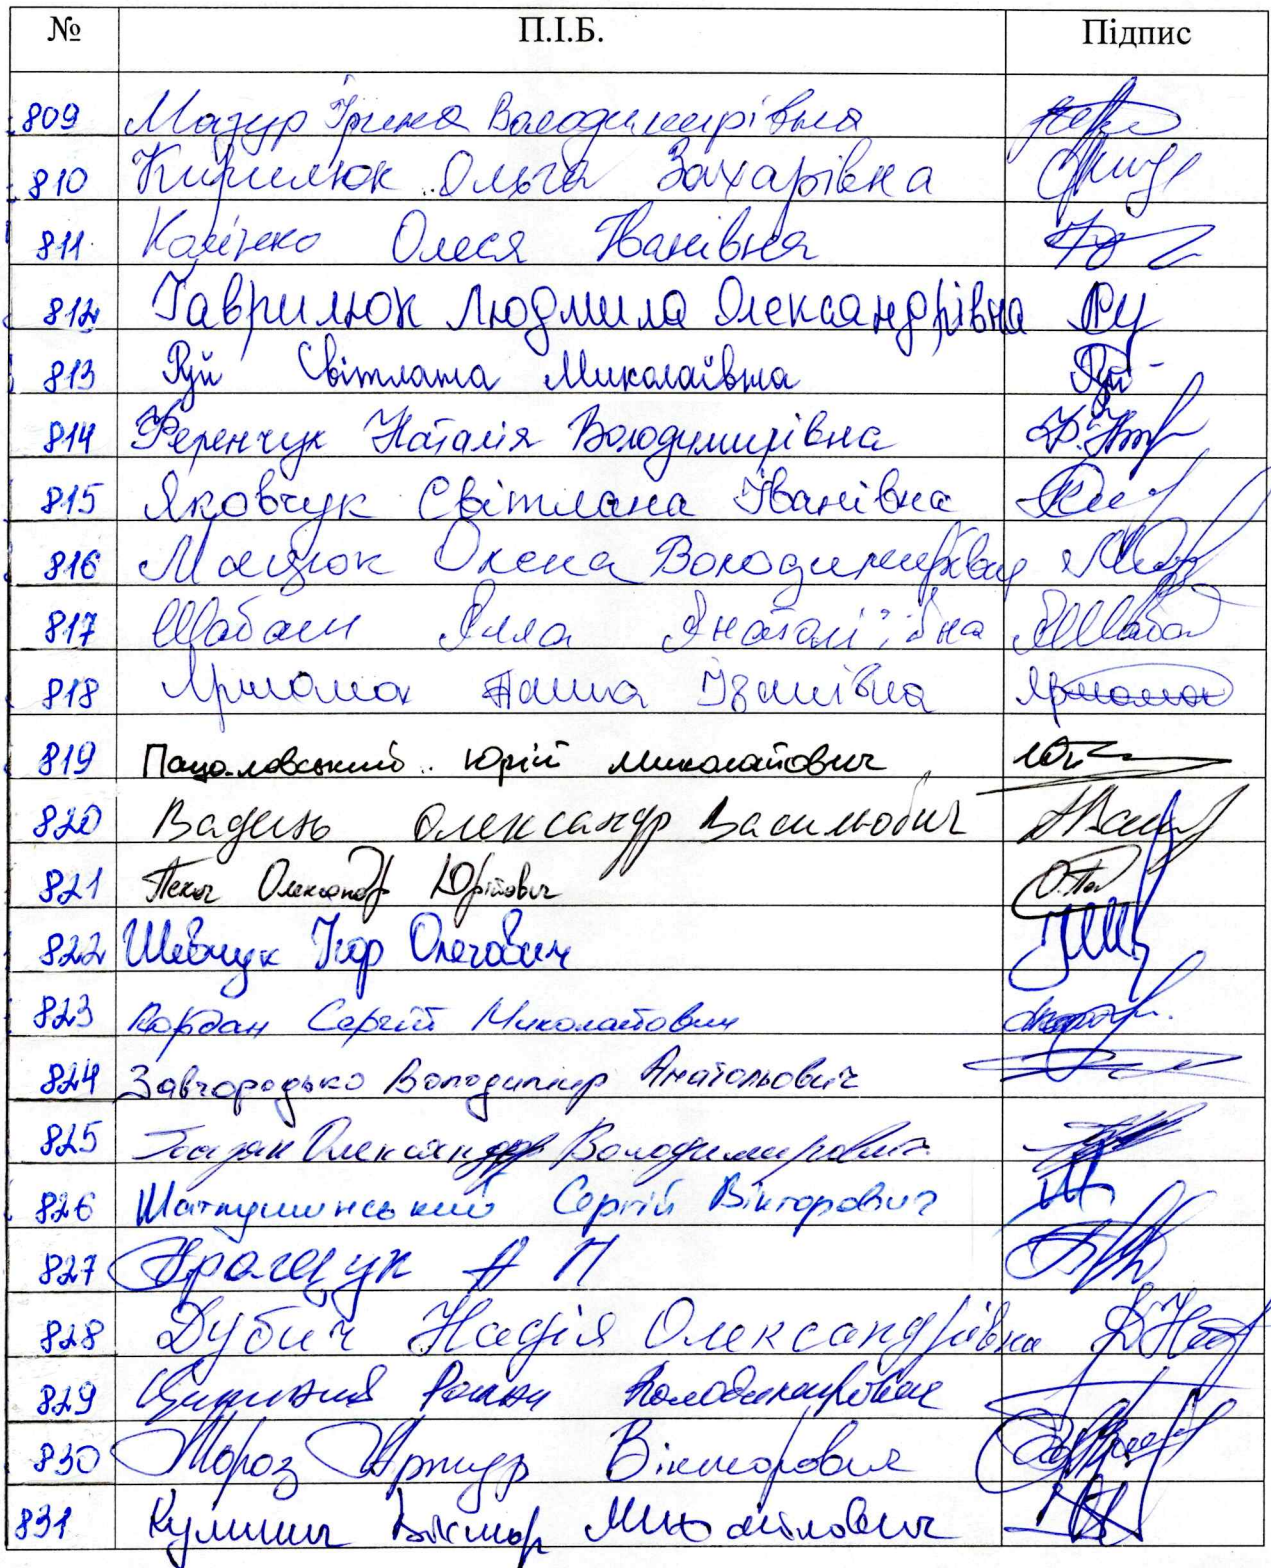 № П.І.Б. Підпис
809 Мазур Ірина Володимирівна
810 Кирилюк Ольга Захарівна
811 Олеся Іванівна
812 Гаврилюк Людмила Олександрівна
813 Руй Світлана Миколаївна Руй
814 Ференчук Наталія Володимирівна
815 Яковчук Світлана Іванівна
816 Олена Володимирівна
817 Шабаш Алла Анатоліївна
818 Ярмола Ганна Іванівна
819 Юрій Миколайович
820 Вадень Олександр Васильович
821 Олександр Юрійович
822 Шевчук Ігор Олегович
823 Кордан Сергій Миколайович
824 Завгородько Володимир Анатольович
825 Олександр Володимирович
826 Сергій Вікторович
827 А П
828 Дубич Надія Олександрівна
829 Роман Володимирович
830 Мороз Артур Вікторович
831 Кулинич Віктор Михайлович